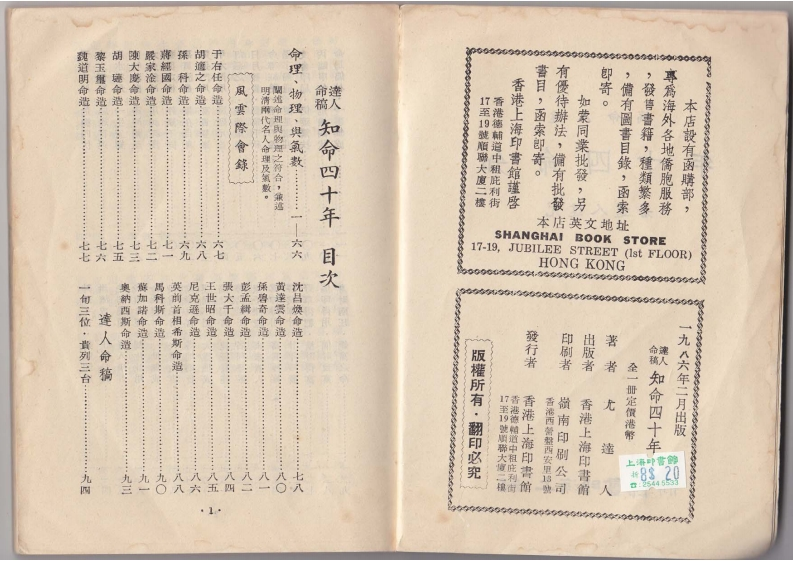 本店設有函購部，
專爲海外各地僑胞服務
，發售書籍，種類繁多
，備有圖書目錄，函索
卽寄。
如蒙同業批發，另
有優待辦法，備有批發
書目，函索卽寄。
香港上海印書館謹啓
香港德輔道中租庇利街
17至19號順聯大廈二樓
本店英文地址
SHANGHAI BOOK STORE
17-19, JUBILEE STREET (1st FLOOR)
HONG KONG
一九八六年二月出版
達人命稿 知命四十年
全一冊定價港幣
上海印書館
8$ 20
25445533
著者 尤達人
出版者 香港上海印書館
印刷者 嶺南印刷公司
香港西營盤西安里13號
發行者 香港上海印書館
香港德輔道中租庇利街
17至19號順聯大廈二樓
版權所有・翻印必究
達人命稿 知命四十年 目次
命理、物理、與氣數……一—六六
闡述命理與物理之符合，兼述
明清兩代名人命理及氣數。
風雲際會錄
于右任命造……六七
胡適之命造……六八
孫 科命造……六九
蔣經國命造……七一
嚴家淦命造……七二
陳大慶命造……七三
胡 璉命造……七五
黎玉璽命造……七六
魏道明命造……七七
沈昌煥命造……七八
黃達雲命造……八〇
孫碧奇命造……八一
彭孟緝命造……八二
張大千命造……八四
王世昭命造……八五
尼克遜命造……八六
英前首相希斯命造……八八
馬科斯命造……九〇
蘇加諾命造……九一
奧納西斯命造……九三
達人命稿
一旬三位・貴列三台……九四
・1・